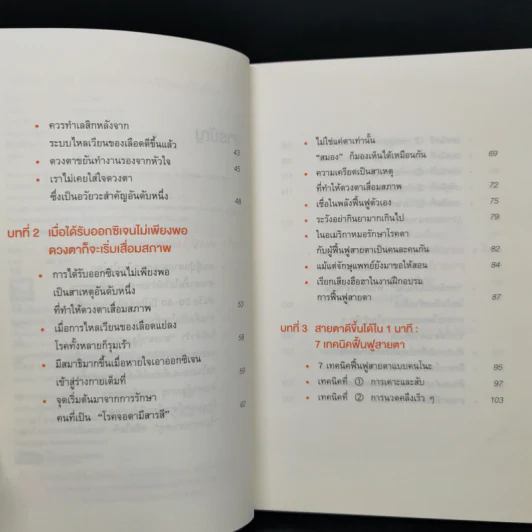 • ควรทำเลสิกหลังจาก
ระบบไหลเวียนของเลือดดีขึ้นแล้ว 43
• ดวงตาขยันทำงานรองจากหัวใจ 45
• เราไม่เคยใส่ใจดวงตา
ซึ่งเป็นอวัยวะสำคัญอันดับหนึ่ง 48
บทที่ 2 เมื่อได้รับออกซิเจนไม่เพียงพอ
ดวงตาก็จะเริ่มเสื่อมสภาพ
• การได้รับออกซิเจนไม่เพียงพอ
เป็นสาเหตุอันดับหนึ่ง
ที่ทำให้ดวงตาเสื่อมสภาพ 51
• เมื่อการไหลเวียนของเลือดแย่ลง
โรคทั้งหลายก็รุมเร้า 58
• มีสมาธิมากขึ้นเมื่อหายใจเอาออกซิเจน
เข้าสู่ร่างกายเต็มที่ 59
• จุดเริ่มต้นมาจากการรักษา
คนที่เป็น "โรคจอตามีสารสี" 62
• ไม่ใช่แค่ตาเท่านั้น
"สมอง" ก็มองเห็นได้เหมือนกัน 69
• ความเครียดเป็นสาเหตุ
ที่ทำให้ดวงตาเสื่อมสภาพ 72
• เชื่อในพลังฟื้นฟูตัวเอง 75
• ระวังอย่ากินยามากเกินไป 79
• ในอเมริกาหมอรักษาโรคตา
กับผู้ฟื้นฟูสายตาเป็นคนละคนกัน 82
• แม้แต่จักษุแพทย์ยังมาขอให้สอน 84
• เรียกเสียงฮือฮาในงานฝึกอบรม
การฟื้นฟูสายตา 87
บทที่ 3 สายตาดีขึ้นได้ใน 1 นาที :
7 เทคนิคฟื้นฟูสายตา
• 7 เทคนิคฟื้นฟูสายตาแบบคนโนะ 95
• เทคนิคที่ ① การเคาะและสับ 97
• เทคนิคที่ ② การนวดคลึงเร็ว ๆ 103